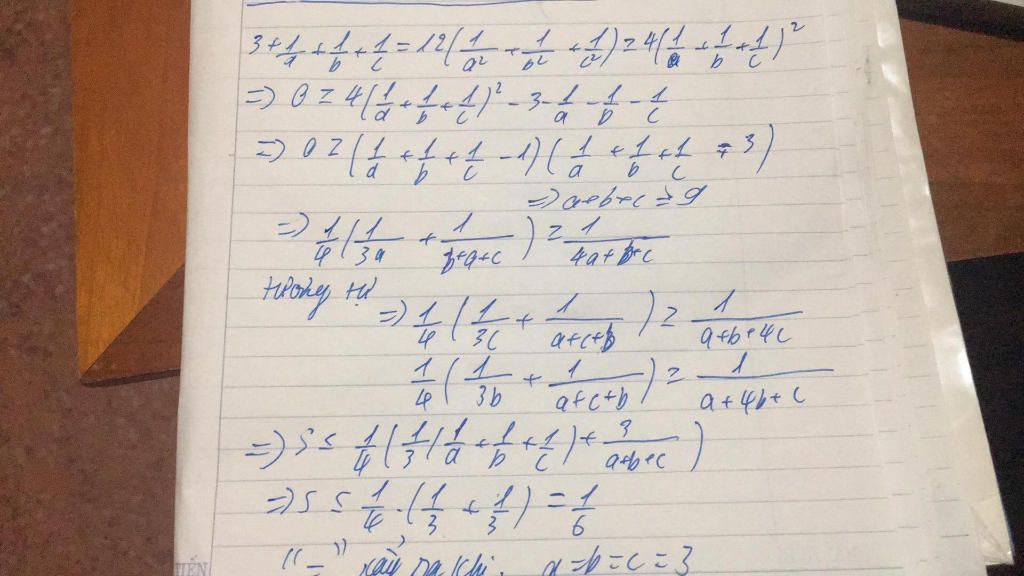 3 + 1/a + 1/b + 1/c = 12(1/a² + 1/b² + 1/c²) ≥ 4(1/a + 1/b + 1/c)²
=> 0 ≥ 4(1/a + 1/b + 1/c)² - 3 - 1/a - 1/b - 1/c
=> 0 ≥ (1/a + 1/b + 1/c - 1)(1/a + 1/b + 1/c + 3)
=> a+b+c ≥ 9
=> 1/4(1/3a + 1/b+a+c) ≥ 1/4a+b+c
tương tự
=> 1/4(1/3c + 1/a+c+b) ≥ 1/a+b+4c
1/4(1/3b + 1/a+c+b) ≥ 1/a+4b+c
=> S ≤ 1/4(1/3(1/a + 1/b + 1/c) + 3/a+b+c)
=> S ≤ 1/4 . (1/3 + 1/3) = 1/6
"=" xảy ra khi: a=b=c=3